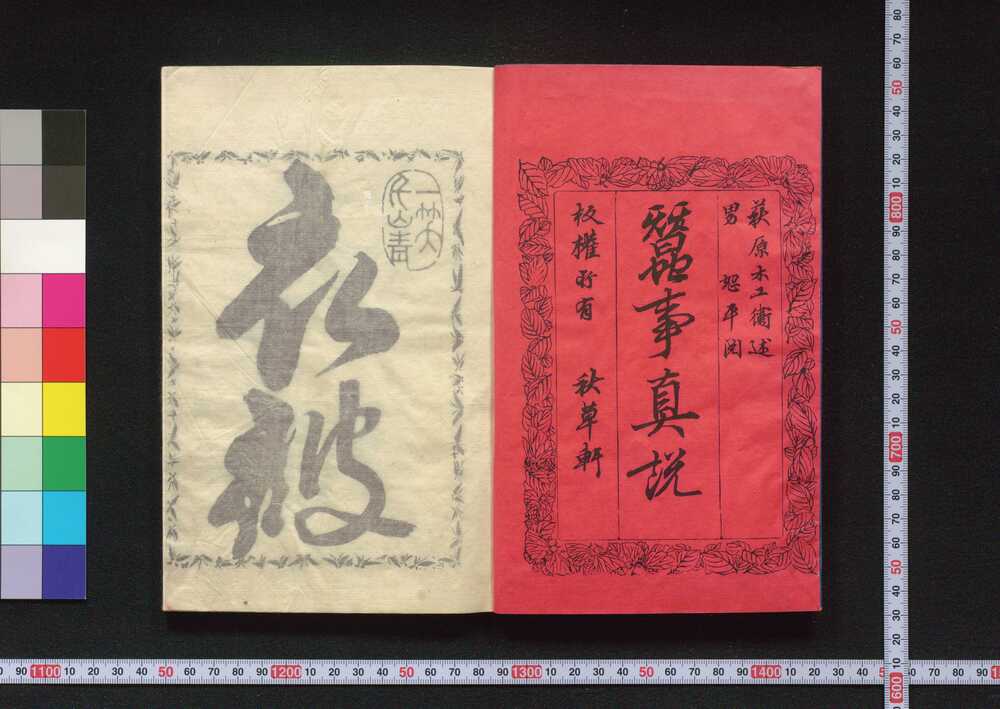 萩原木工衛述
男 恕平閲
蠶事真説
板權所有 秋草軒
衣被
80
70
60
50
40
30
20
10
800
90
80
70
60
50
40
30
20
10
700
90
80
70
60
50
40
30
20
10
600
90 1100 10 20 30 40 50 60 70 80 90 1200 10 20 30 40 50 60 70 80 90 1300 10 20 30 40 50 60 70 80 90 1400 10 20 30 40 50 60 70 80 90